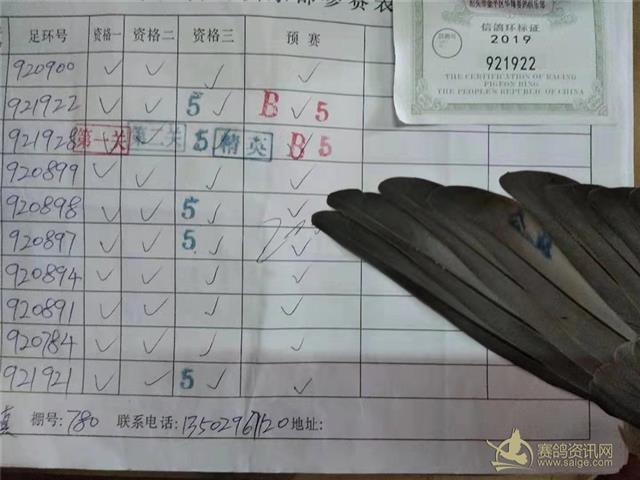 参赛表
足环号 资格一 资格二 资格三 预赛
920900 ✓ ✓ ✓ ✓
921922 ✓ ✓ 5 ✓ B ✓ 5
921928 第一关 ✓ 第二关 ✓ 5 ✓ 精英 B ✓ 5
920899 ✓ ✓ ✓ ✓
920898 ✓ ✓ 5 ✓ ✓
920897 ✓ ✓ 5 ✓ ✓
920894 ✓ ✓ ✓ ✓
920891 ✓ ✓ ✓ ✓
920784 ✓ ✓ ✓ ✓
921921 ✓ ✓ 5 ✓ ✓
棚号: 780 联系电话: 地址:
信鸽环标证
2019
921922
THE CERTIFICATION OF RACING
PIGEON RING
THE PEOPLE'S REPUBLIC OF CHINA
赛鸽资讯网
www.saige.com